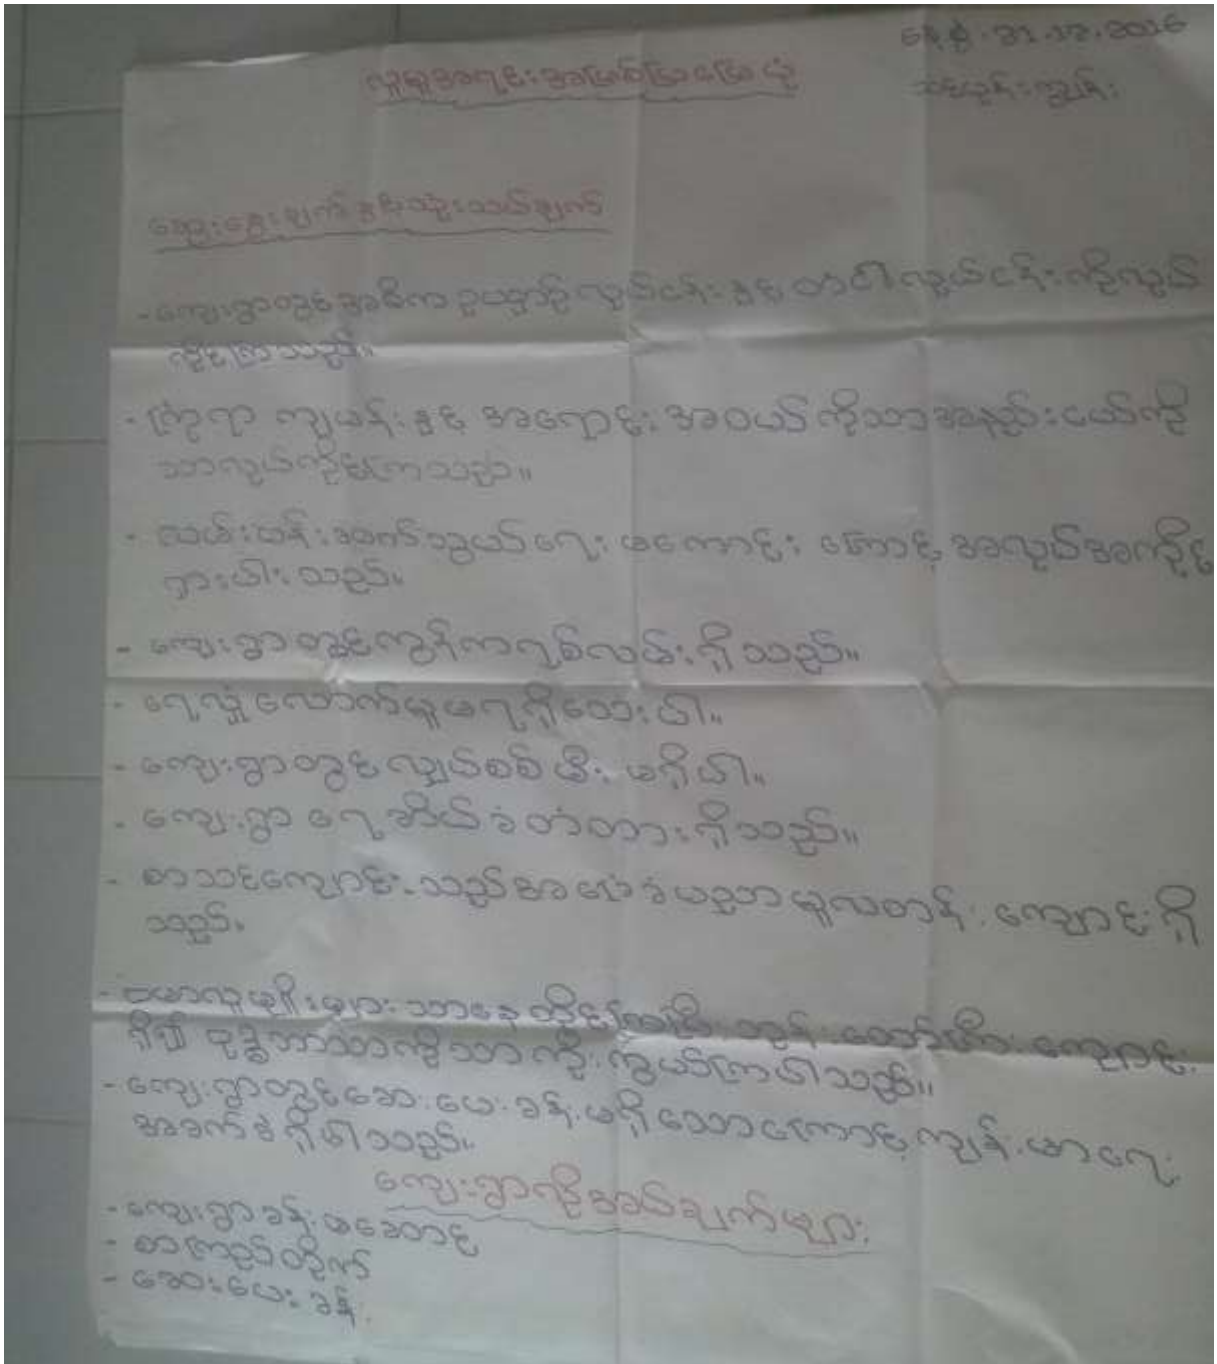 နေ့စွဲ. 31.12.2016
လူမူအရင်းအမြစ်ပြမြေပုံ
သင်ပုန်းကျွန်း
ဆွေးနွေးချက်နှင့်သုံးသပ်ချက်
- ကျေးရွာတွင်အဓိက ဥယျာဉ်လုပ်ငန်းနှင့် တံငါလုပ်ငန်းကိုလုပ်
ကိုင်ကြသည်။
- ကြံရာ ကျပန်းနှင့် အရောင်းအဝယ်ကိုသာအနည်းငယ်ကို
သာလုပ်ကိုင်ကြသည်။
- လမ်းပန်းဆက်သွယ်ရေး မကောင်းကြောင့် အလုပ်အကိုင်
ရှားပါးသည်။
- ကျေးရွာတွင်ကွန်ကရစ်လမ်းရှိသည်။
- ရေလုံလောက်မူမရရှိသေးပါ။
- ကျေးရွာတွင် လျှပ်စစ်မီး မရှိပါ။
- ကျေးရွာ ရေဆိပ်ခံတံတားရှိသည်။
- စာသင်ကျောင်းသည်အခြေခံပညာမူလတန်းကျောင်းရှိ
သည်။
- ဗမာလူမျိုးများသာနေထိုင်ကြပြီး ဘုန်းတော်ကြီးကျောင်း
ရှိပြီ ဗုဒ္ဓဘာသာကိုသာကိုးကွယ်ကြပါသည်။
- ကျေးရွာတွင်ဆေးပေးခန်းမရှိသောကြောင့်ကျန်းမာရေး
အခက်ခဲရှိပါသည်။
ကျေးရွာလိုအပ်ချက်များ
- ကျေးရွာခန်းမဆောင်
- စာကြည့်တိုက်
- ဆေးပေးခန်း